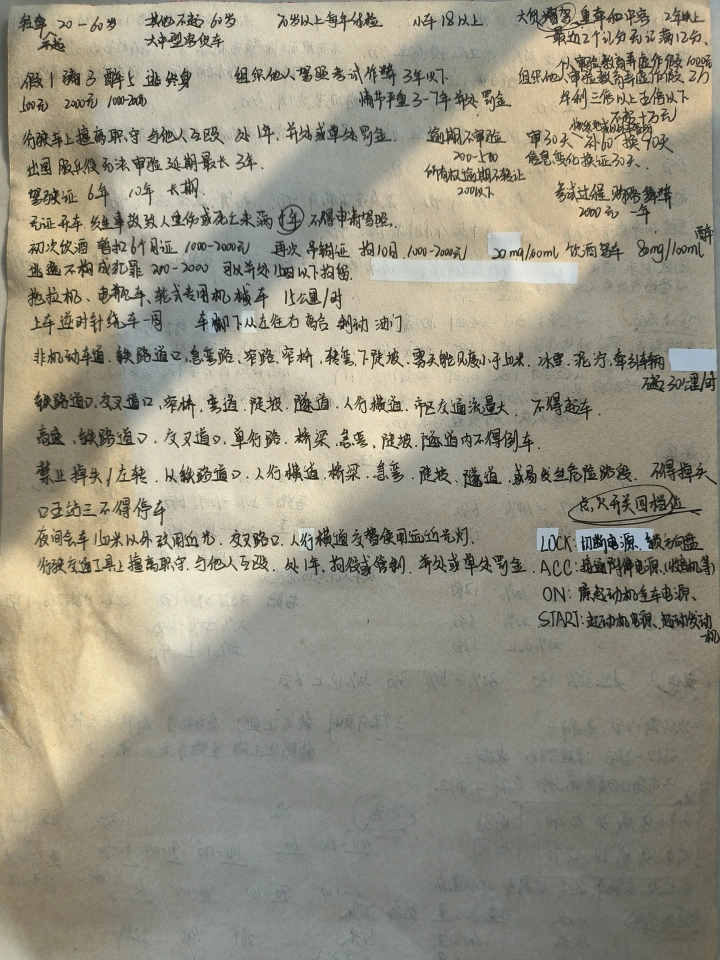 轻牵 20-60岁 其他不超60岁 70岁以上每年体检 小车18以上 大伤增驾重牵和中客 2年以上
大中型客货车 最近2个记分无记满12分、
假1 瞒3 醉5 逃终身 组织他人驾照考试作弊 3年以下 组织他人审验教育弄虚作假 2万
500元 2000元 1000-2000 情节严重3-7年并处罚金 牟利三倍以上五倍以下
不超十万元
行驶车上擅离职守与他人互殴 处1年,并处或单处罚金. 逾期不审验 审30天、补60 换90天
出国服兵役无法审验延期最长3年. 200-500 信息变化换证30天.
驾驶证 6年 10年 长期. 所有权逾期不转让 200以下 考试过程贿赂舞弊
2000元 一年
无证开车发生事故致人重伤或死亡未满十年不得申请驾照.
初次饮酒 暂扣6个月证 1000-2000元 再次 吊销证 拘10日.1000-2000元 20mg/100ml 饮酒驾车 80mg/100ml 醉车
逃逸不构成犯罪 200-2000 可以并处15日以下拘留.
拖拉机、电瓶车、轮式专用机械车 15公里/时
上车逆时针绕车一周 车脚下从左往右离合 制动 油门
非机动车道.铁路道口.急弯路、窄路、窄桥、转弯、下陡坡.雾天能见度小于50米、冰雪、泥泞、牵引车辆
不超30公里/时
铁路道口.交叉道口、窄桥、弯道、陡坡、隧道、人行横道、市区交通流量大、不得超车.
高速、铁路道口、交叉道口、单行路、桥梁、急弯、陡坡、隧道内不得倒车.
禁止掉头/左转、从铁路道口、人行横道.桥梁、急弯、陡坡、隧道、或易发生危险路段、不得掉头
口五站三不得停车 点火开关四档位
夜间会车150米以外改用近光、交叉路口、人行横道交替使用远近光灯. LOCK:切断电源、锁方向盘
行驶交通工具上擅离职守.与他人互殴、处1年、拘役或管制、并处或单处罚金. ACC:接通附件电源、(收音机等)
ON:除起动机全车电源、
START:起动机电源、起动发动机